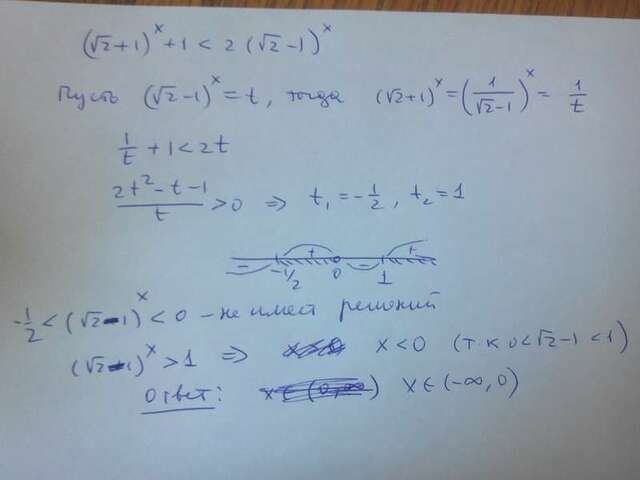 (√2+1)^x + 1 < 2 (√2-1)^x
Пусть (√2-1)^x = t, тогда (√2+1)^x = (1/(√2-1))^x = 1/t
1/t + 1 < 2t
(2t² - t - 1)/t > 0 ⇒ t₁ = -1/2, t₂ = 1
- + - +
-1/2 0 1
-1/2 < (√2-1)^x < 0 - не имеет решений
(√2-1)^x > 1 ⇒ x < 0 (т.к 0 < √2-1 < 1)
Ответ: x ∈ (-∞, 0)